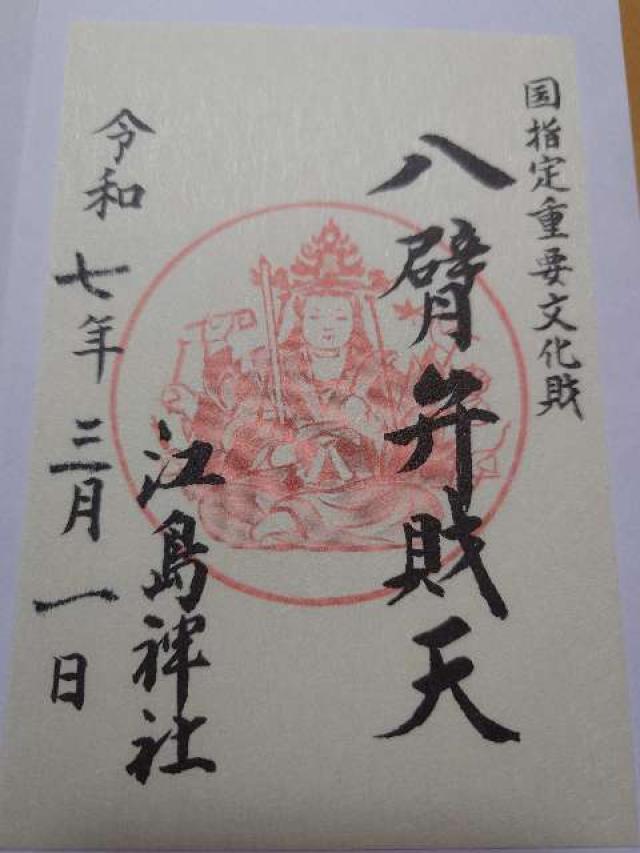 国指定重要文化財
八臂弁財天
江島神社
令和七年三月一日